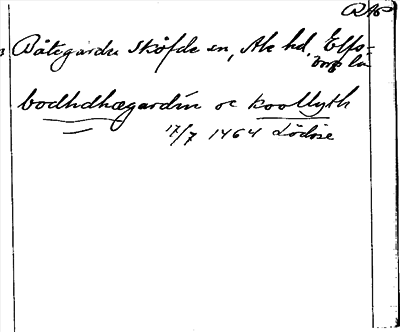 RAP
Båtegården Sköfde sn, Ale hd, Elfs-
borgs län
bodhdhægardin oc koollyth
17/7 1464 Lödöse